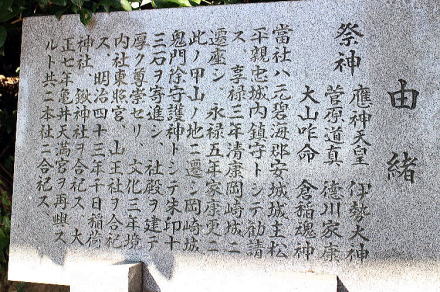 由緒
祭神 應神天皇 伊勢大神
菅原道真 徳川家康
大山咋命 倉稲魂神
當社ハ元碧海郡安城城主松
平親忠城内鎮守トシテ勧請
ス、享禄三年清康岡崎城ニ
遷座シ永禄五年家康更ニ
此ノ甲山ノ地ニ遷シ岡崎城
鬼門除守護神トシテ朱印十
三石ヲ寄進シ、社殿ヲ建テ
厚ク尊崇セリ 文化三年境
内社東照宮、山王社ヲ合祀
ス、明治四十三年千日稲荷
神社、鍬神社ヲ合祀ス、大
正七年亀井天満宮ヲ再興ス
ルト共ニ本社ニ合祀ス